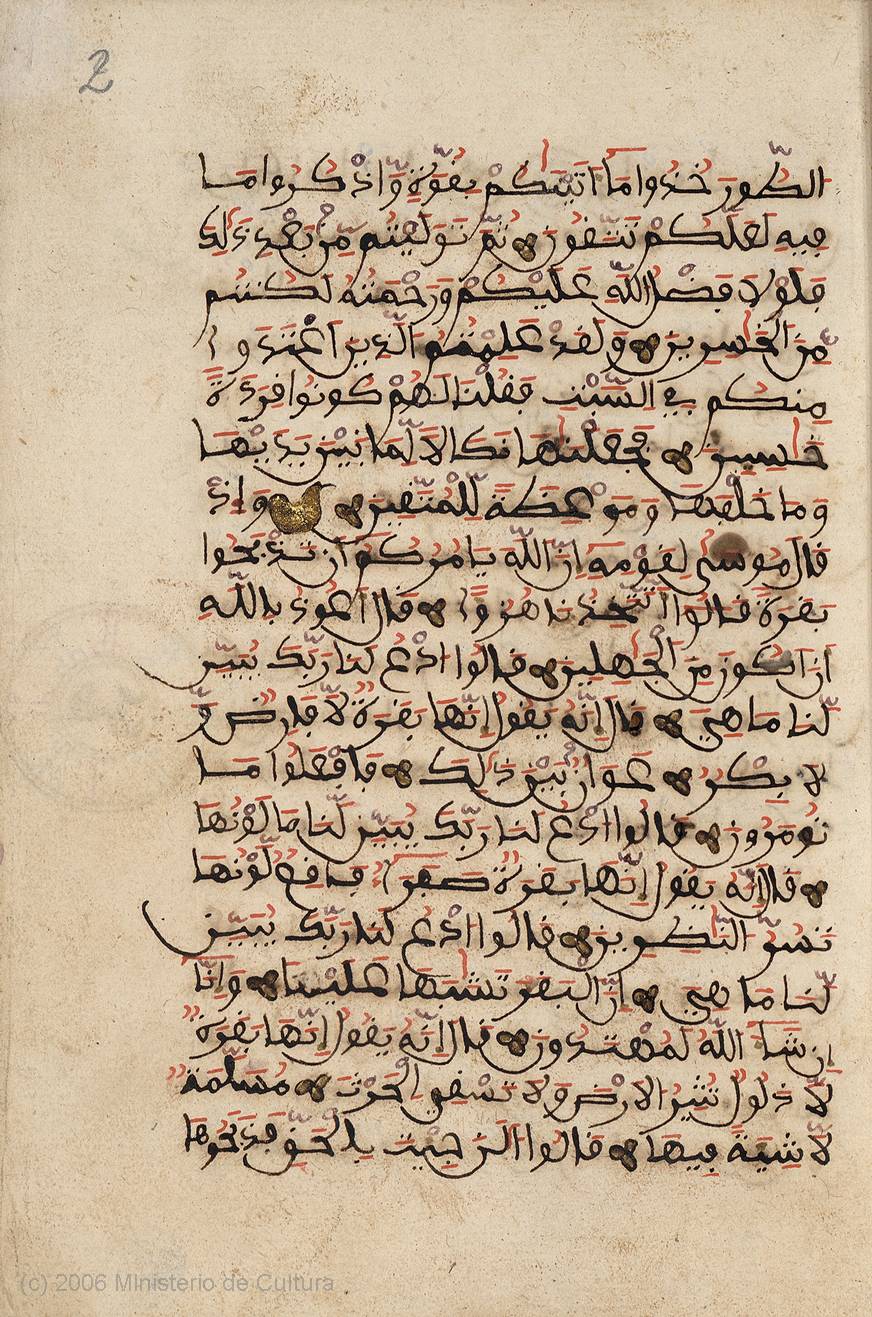 2
الطُّورَ خُذُوا مَا ءَاتَيْنَٰكُم بِقُوَّةٍ وَّاذْكُرُوا مَا
فِيهِ لَعَلَّكُمْ تَتَّقُونَ ثُمَّ تَوَلَّيْتُم مِّنۢ بَعْدِ ذَٰلِكَ
فَلَوْلَا فَضْلُ اللَّهِ عَلَيْكُمْ وَرَحْمَتُهُ لَكُنتُم
مِّنَ الْخَٰسِرِينَ وَلَقَدْ عَلِمْتُمُ الَّذِينَ اعْتَدَوْا
مِنكُمْ فِي السَّبْتِ فَقُلْنَا لَهُمْ كُونُوا قِرَدَةً
خَٰسِـِٔينَ فَجَعَلْنَٰهَا نَكَالًا لِّمَا بَيْنَ يَدَيْهَا
وَمَا خَلْفَهَا وَمَوْعِظَةً لِّلْمُتَّقِينَ وَإِذْ
قَالَ مُوسَىٰ لِقَوْمِهِ إِنَّ اللَّهَ يَامُرُكُمْ أَن تَذْبَحُوا
بَقَرَةً قَالُوا أَتَتَّخِذُنَا هُزُؤًا قَالَ أَعُوذُ بِاللَّهِ
أَنْ أَكُونَ مِنَ الْجَٰهِلِينَ قَالُوا ادْعُ لَنَا رَبَّكَ يُبَيِّن
لَّنَا مَا هِيَ قَالَ إِنَّهُ يَقُولُ إِنَّهَا بَقَرَةٌ لَّا فَارِضٌ وَّ
لَا بِكْرٌ عَوَانٌۢ بَيْنَ ذَٰلِكَ فَافْعَلُوا مَا
تُومَرُونَ قَالُوا ادْعُ لَنَا رَبَّكَ يُبَيِّن لَّنَا مَا لَوْنُهَا
قَالَ إِنَّهُ يَقُولُ إِنَّهَا بَقَرَةٌ صَفْرَاءُ فَاقِعٌ لَّوْنُهَا
تَسُرُّ النَّٰظِرِينَ قَالُوا ادْعُ لَنَا رَبَّكَ يُبَيِّن
لَّنَا مَا هِيَ إِنَّ الْبَقَرَ تَشَٰبَهَ عَلَيْنَا وَإِنَّا
إِن شَاءَ اللَّهُ لَمُهْتَدُونَ قَالَ إِنَّهُ يَقُولُ إِنَّهَا بَقَرَةٌ
لَّا ذَلُولٌ تُثِيرُ الْأَرْضَ وَلَا تَسْقِي الْحَرْثَ مُسَلَّمَةٌ
لَّا شِيَةَ فِيهَا قَالُوا الْـَٰٔنَ جِئْتَ بِالْحَقِّ فَذَبَحُوهَا
(c) 2006 Ministerio de Cultura